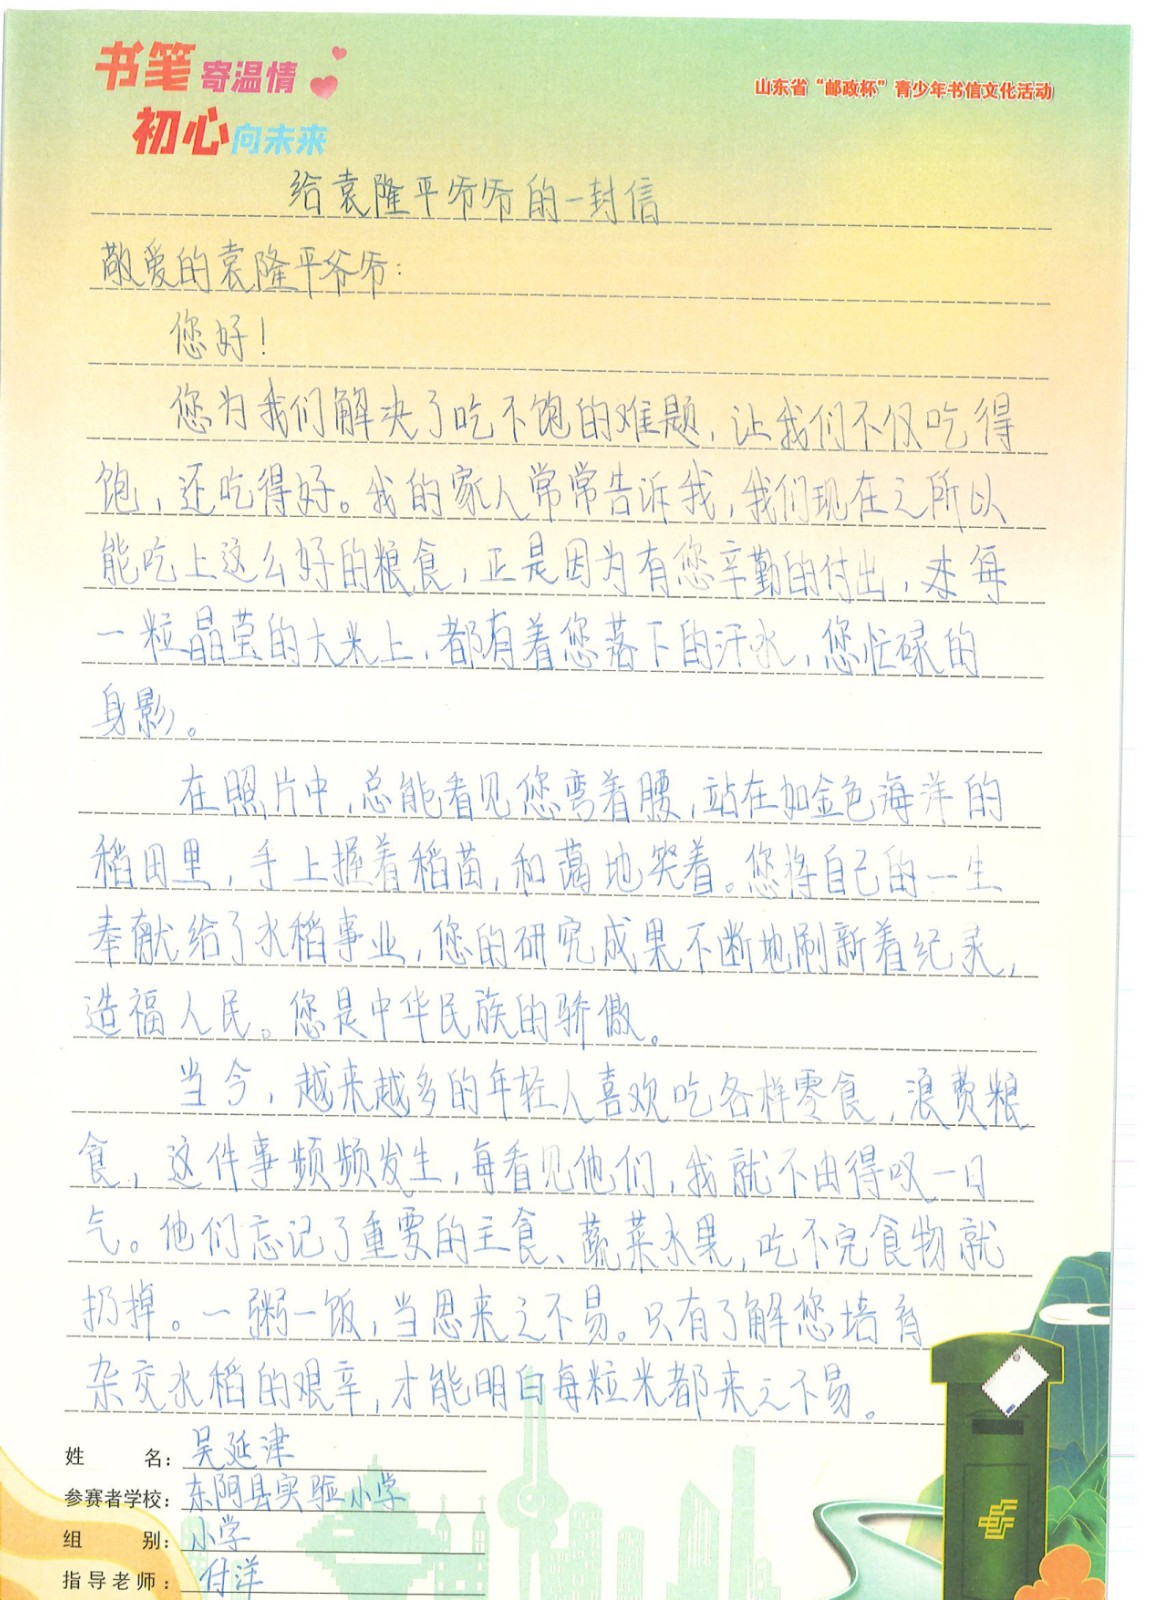 书笔寄温情
初心向未来
山东省“邮政杯”青少年书信文化活动
给袁隆平爷爷的一封信
敬爱的袁隆平爷爷：
您好！
您为我们解决了吃不饱的难题，让我们不仅吃得
饱，还吃得好。我的家人常常告诉我，我们现在之所以
能吃上这么好的粮食，正是因为有您辛勤的付出，每
一粒晶莹的大米上，都有着您落下的汗水，您忙碌的
身影。
在照片中，总能看见您弯着腰，站在如金色海洋的
稻田里，手上握着稻苗，和蔼地笑着。您将自己的一生
奉献给了水稻事业，您的研究成果不断地刷新着纪录，
造福人民。您是中华民族的骄傲。
当今，越来越多的年轻人喜欢吃各样零食，浪费粮
食，这件事频频发生，每看见他们，我就不由得叹一口
气。他们忘记了重要的主食、蔬菜水果，吃不完食物就
扔掉。一粥一饭，当思来之不易。只有了解您培育
杂交水稻的艰辛，才能明白每粒米都来之不易。
姓名：吴延津
参赛者学校：东阿县实验小学
组别：小学
指导老师：付洋